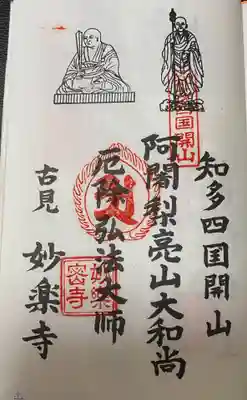 知多四国開山
阿闍梨亮山大和尚
厄除弘法大師
古見 妙楽寺
四国開山
妙楽密寺